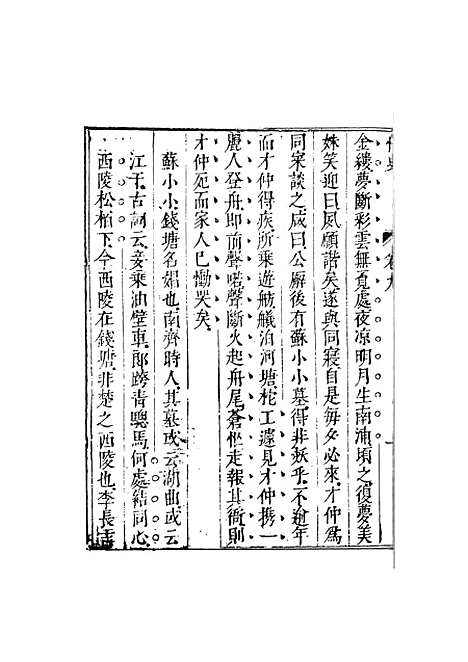 金縷夢斷彩雲無覓處夜凉明月生南浦頃之復夢美
姝笑迎曰夙願諧矣遂與同寢自是每夕必來才仲爲
同寀談之咸曰公廨後有蘇小小墓得非妖乎不逾年
而才仲得疾所乘遊舫艤泊河塘柁工遽見才仲携一
麗人登舟即前聲喏聲斷火起舟尾蒼忙走報其衙則
才仲死而家人已慟哭矣
蘇小小錢塘名娼也南齊時人其墓或云湖曲或云
江干古詞云妾乘油壁車郎跨青驄馬何處結同心
西陵松柏下今西陵在錢塘非楚之西陵也李長吉